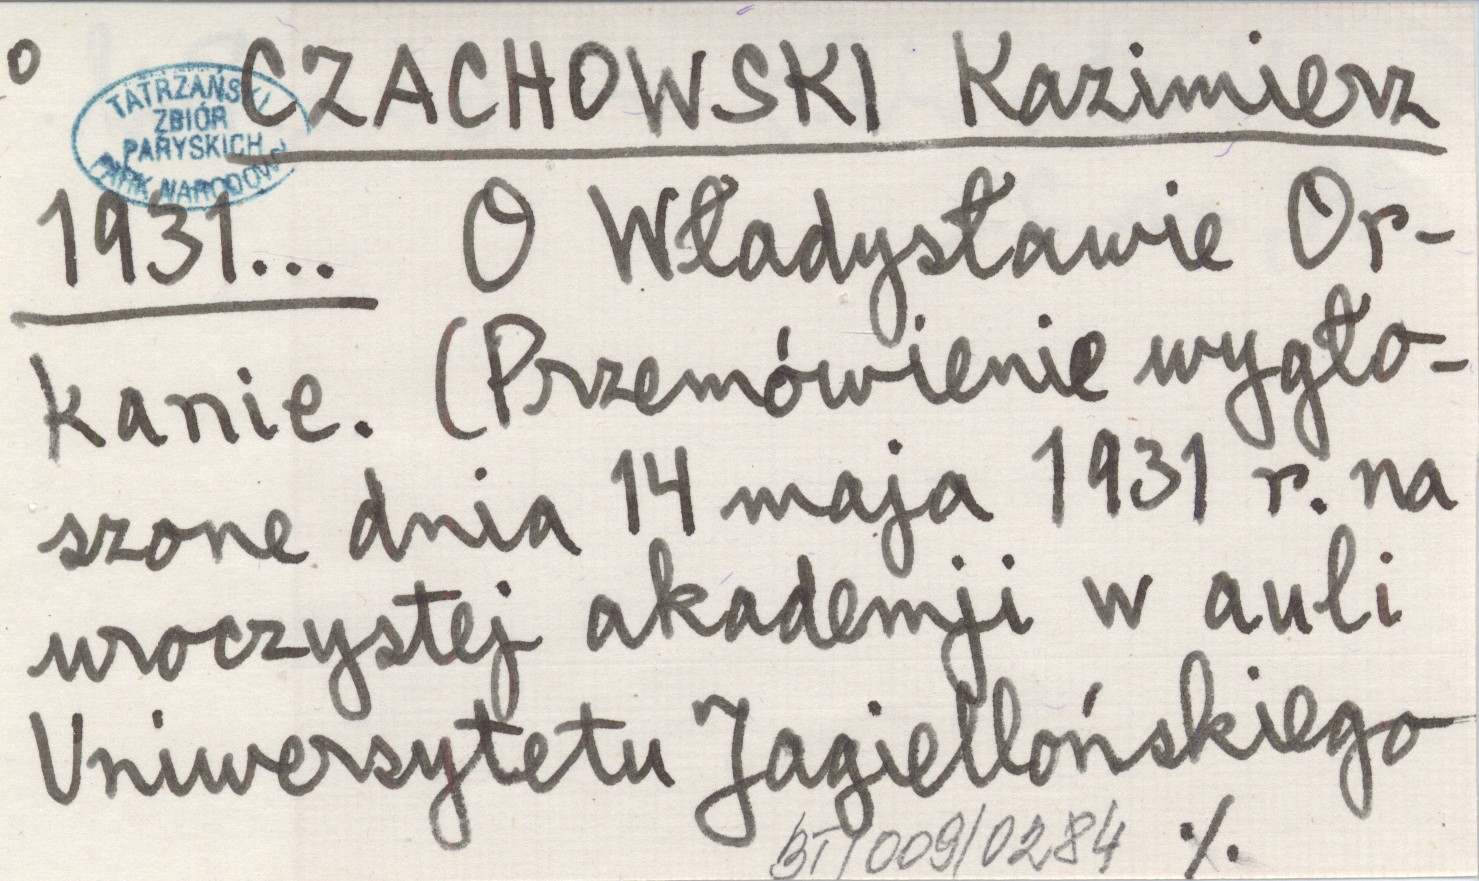 o
CZACHOWSKI Kazimierz
TATRZAŃSKI
ZBIÓR
PARYSKICH
PARK NARODOWY
1931... O Władysławie Or-
kanie. (Przemówienie wygło-
szone dnia 14 maja 1931 r. na
uroczystej akademji w auli
Uniwersytetu Jagiellońskiego
BT/009/0284 ./.